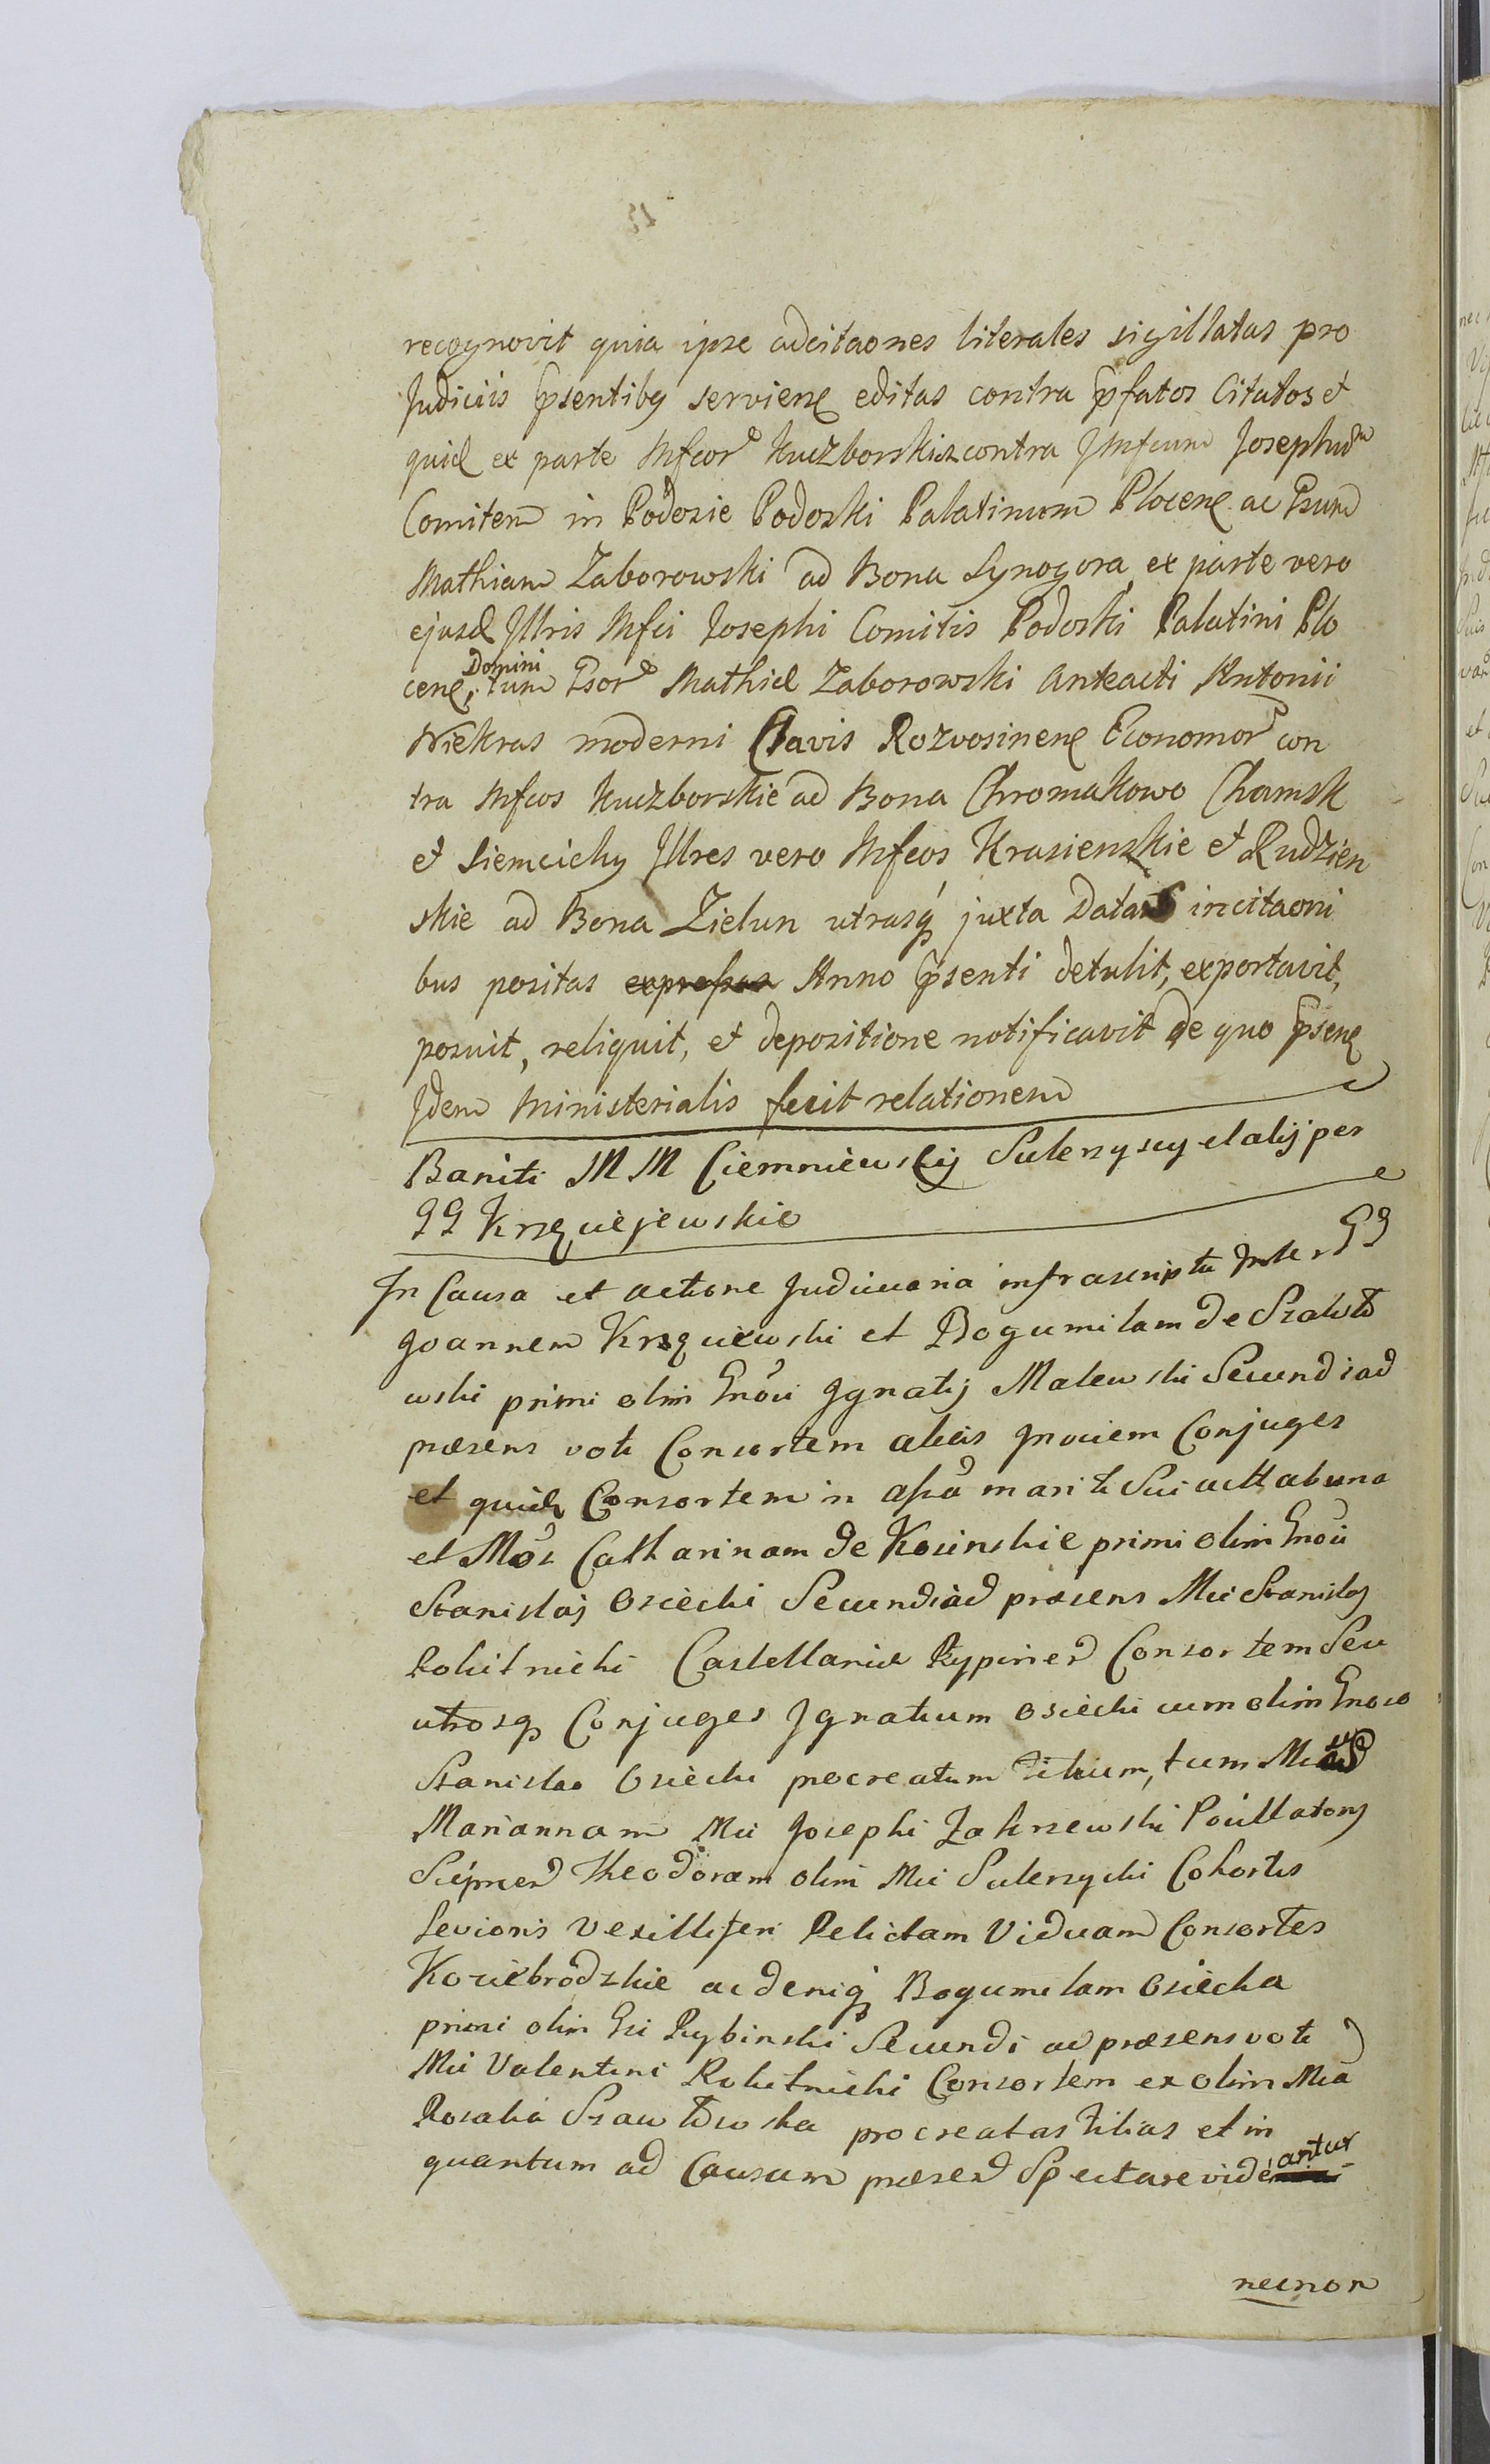 recognovit quia ipse adcitaones literales sigillatas pro
Judiciis psentiby serviene editas contra pfatos Citatos et
quid ex parte Mfcor Kuczborskich contra JMfcum Josephum
Comitem in Podosie Podoski Palatinum Plocene ac Gsum
Mathiam Zaborowski ad Bona Synogora ex parte vero
ejusd Jllris Mfci Josephi Comitis Podoski Palatini Plo
cene, Domini tum Gsor Mathiæ Zaborowski Anteacti Antonii
Niekras moderni Clavis Rozvosinene Economor con
tra Mfcos Kuczborskie ad Bona Chromakowo Chamsk
et Siemcichy Jllres vero Mfcos Krasienskie et Rudzien
skie ad Bona Zielun utrasq juxta Datas incitaoni
bus positas expressas Anno psenti detulit, exportavit,
posuit, reliquit, et depositione notificavit de quo psene
Jdem Ministerialis fecit relationem
Baniti M M Ciemniewscy Sulerzyscy et alij per
GG Krzęciejewskie
In Causa et actione Judiciaria infrascripta Inter GG
Joannem Krzęciewski et Bogumilam de Szawło
wski primi olim Gnosi Jgnatij Malewski Secundi ad
præsens voti Consortem alias Jnvicem Conjuges
et quid Consortem in assa mariti Sui acthabuna
et Mos Catharinam de Kosinskie primi olim Gnosi
Stanislaj Osiecki Secundi ad præsens Mci Stanislaj
Rokitnicki Castellaniæ Rypinen Consortem Seu
utrosq Conjuges Jgnatium Osiecki cum olim Gnoso
Stanislao Osiecki procreatum Filium, tum Mcas
Mariannam Mci Josephi Zakrzewski Poillatoris
Sieprcen Theodoram olim Mci Sulerzycki Cohortis
Levioris Vexilliferi Relictam Viduam Consortes
Koziebrodzkie ac deniq Bogumilam Osiecka
primi olim Gsi Rybinski Secundi ad præsens voti
Mci Valentini Rokitnicki Consortem ex olim Mca
Rosalia Szawłowska procreatas Filias et in
quantum ad Causam præsen Spectare videantur
necnon